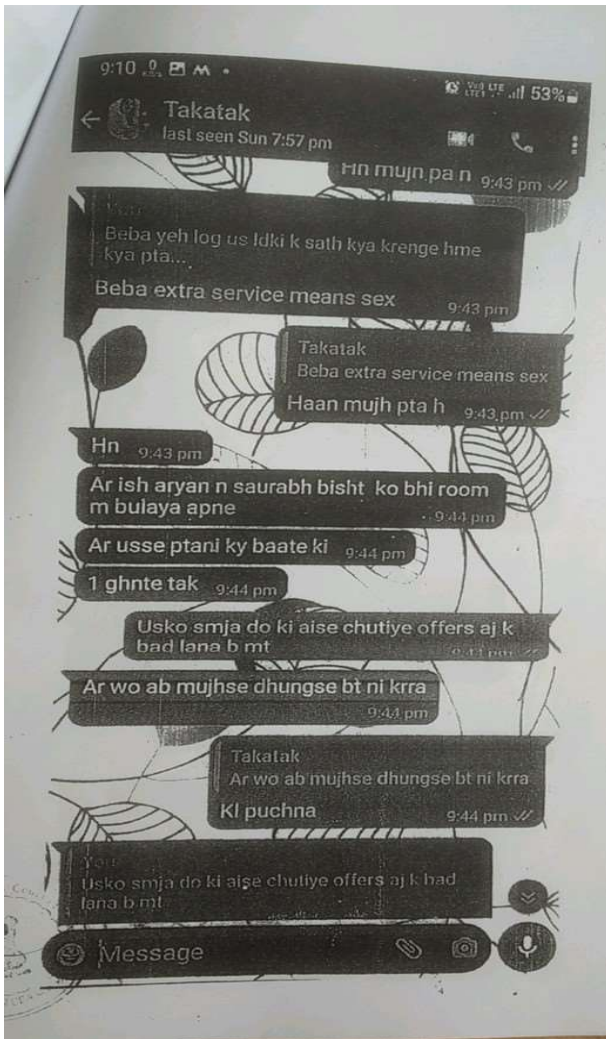 9:10
53%
Takatak
last seen Sun 7:57 pm
Hn mujh pa n 9:43 pm
You
Beba yeh log us ldki k sath kya krenge hme
kya pta...
Beba extra service means sex
9:43 pm
Takatak
Beba extra service means sex
Haan mujh pta h 9:43 pm
Hn 9:43 pm
Ar ish aryan n saurabh bisht ko bhi room
m bulaya apne
9:44 pm
Ar usse ptani ky baate ki 9:44 pm
1 ghnte tak 9:44 pm
Usko smja do ki aise chutiye offers aj k
bad lana b mt
9:44 pm
Ar wo ab mujhse dhungse bt ni krra
9:44 pm
Takatak
Ar wo ab mujhse dhungse bt ni krra
Kl puchna 9:44 pm
You
Usko smja do ki aise chutiye offers aj k bad
lana b mt
Message